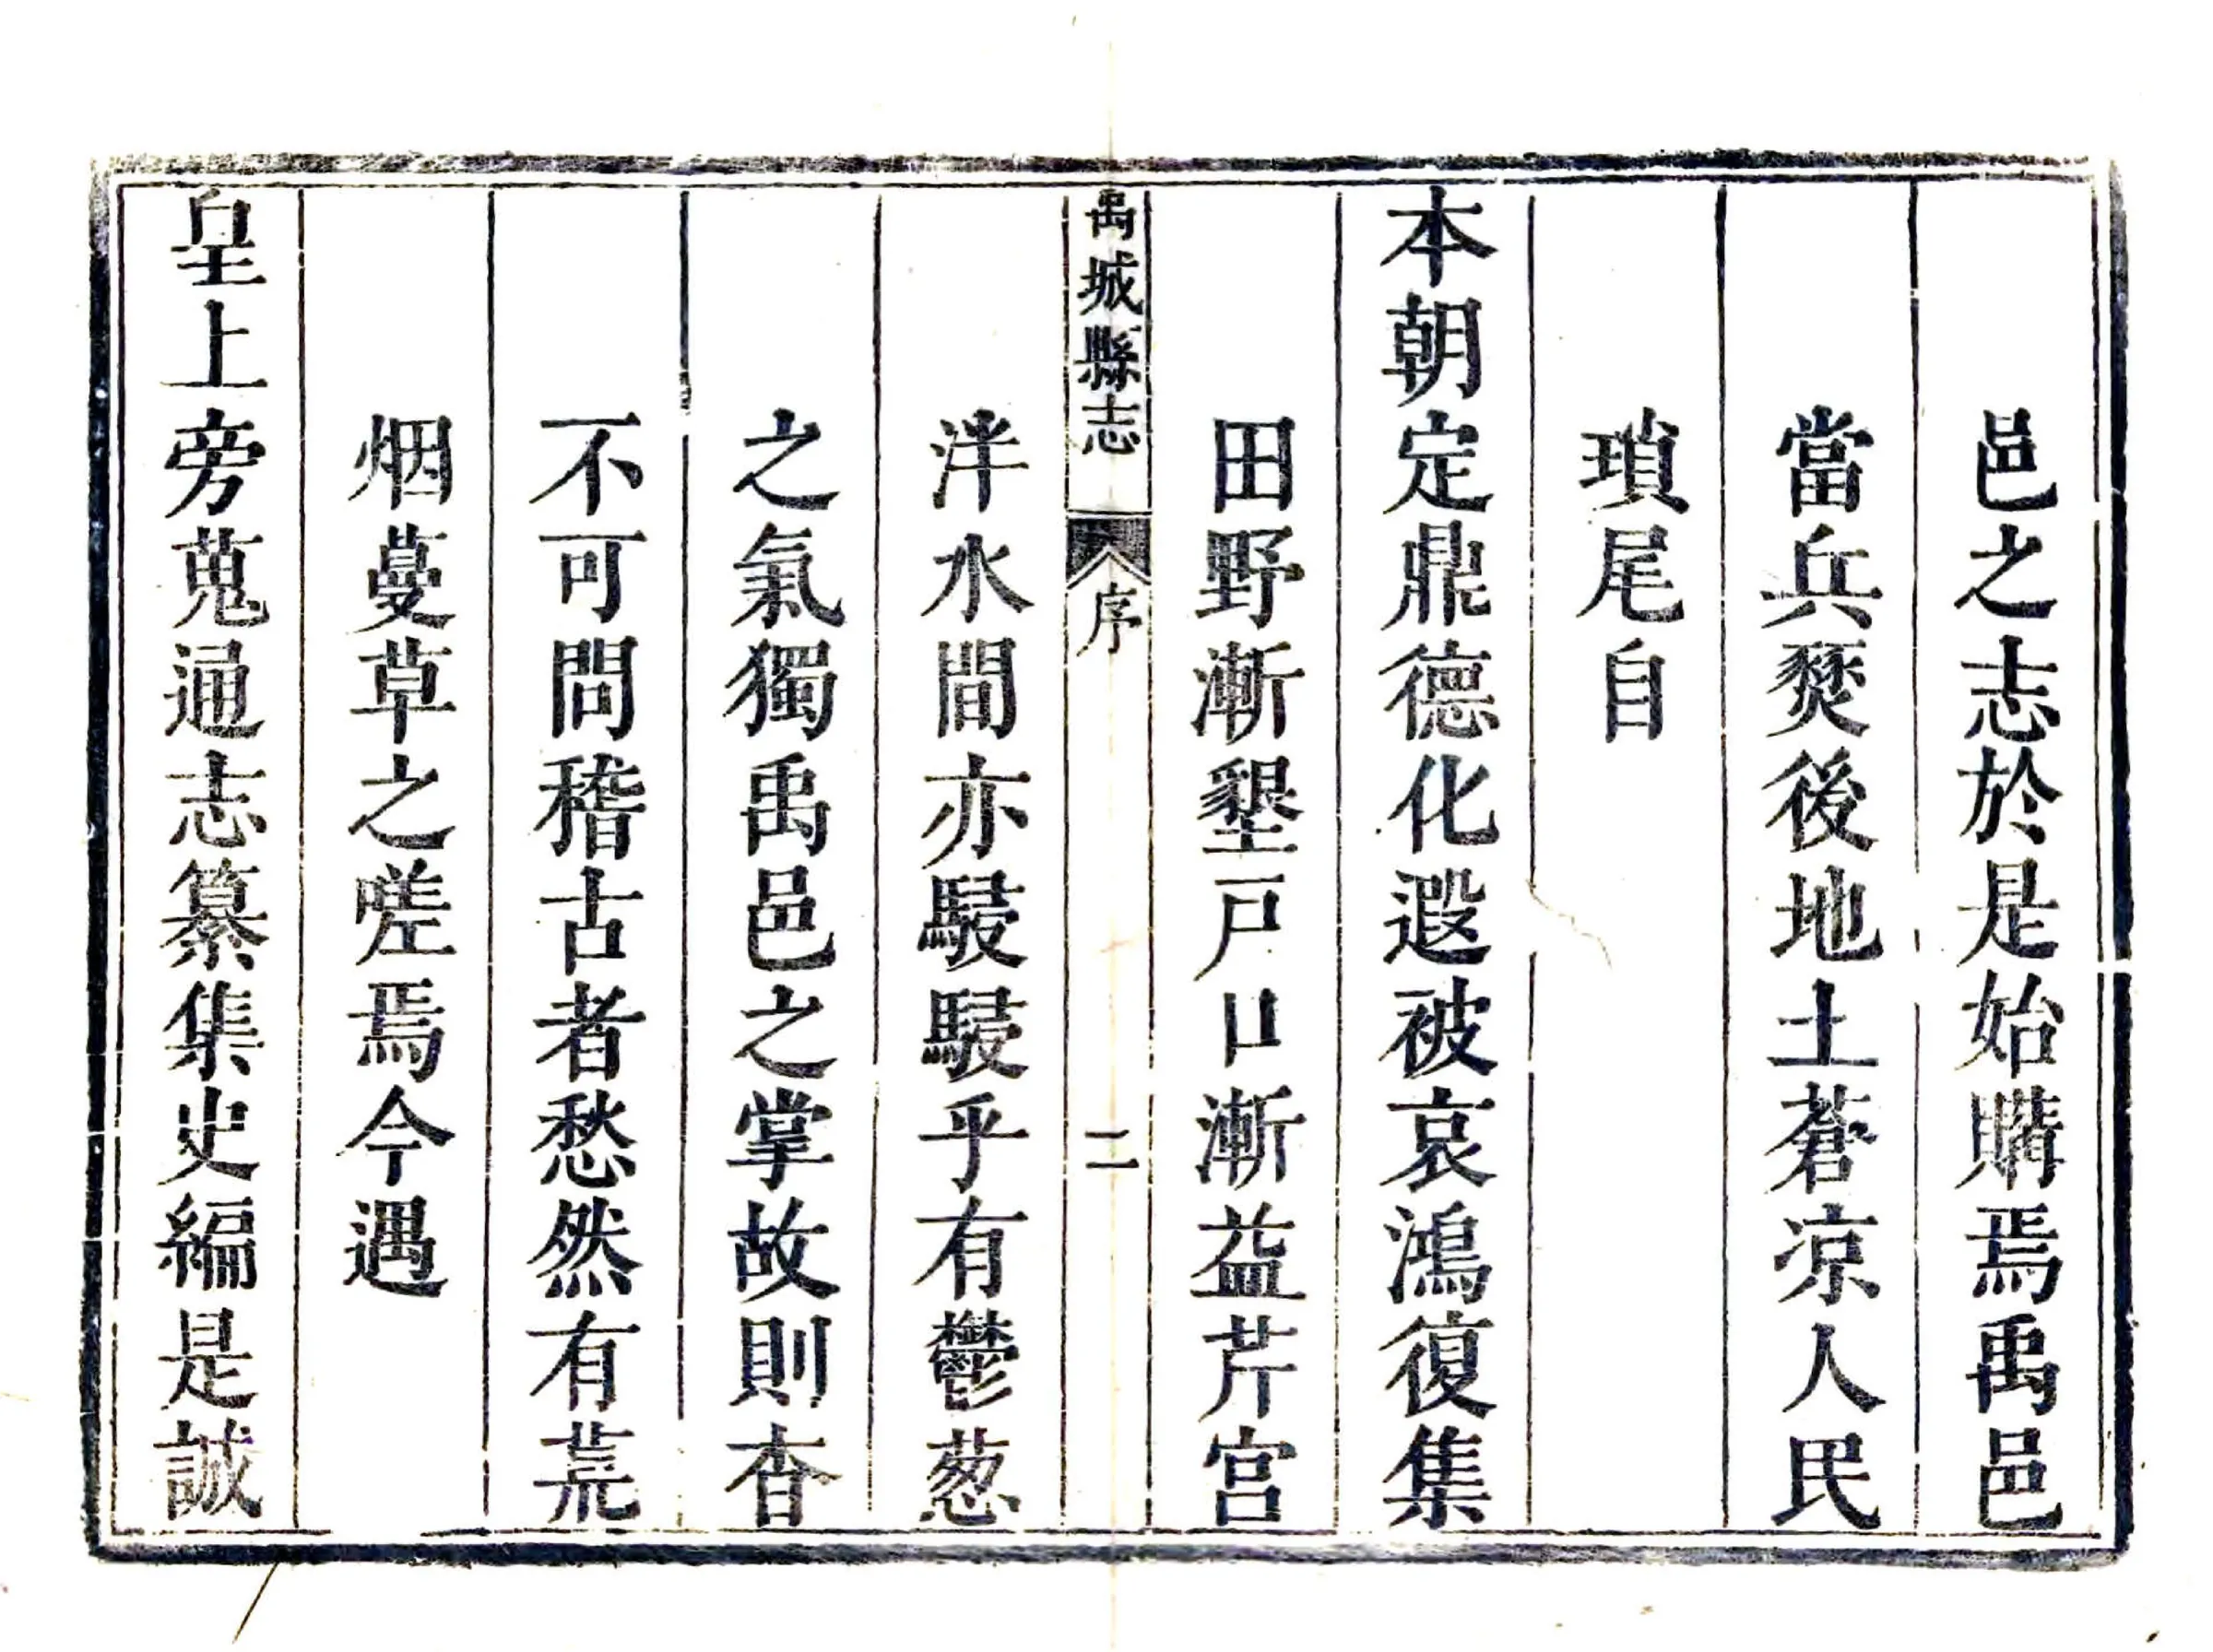 邑之志於是始購焉禹邑
當兵燹後地土蒼凉人民
瑣尾自
本朝定鼎德化遐被哀鴻復集
田野漸墾戸口漸益芹宫
禹城縣志 序 二
泮水間亦駸駸乎有鬱葱
之氣獨禹邑之掌故則杳
不可問稽古者愁然有荒
烟蔓草之嗟焉今遇
皇上旁蒐通志纂集史編是誠